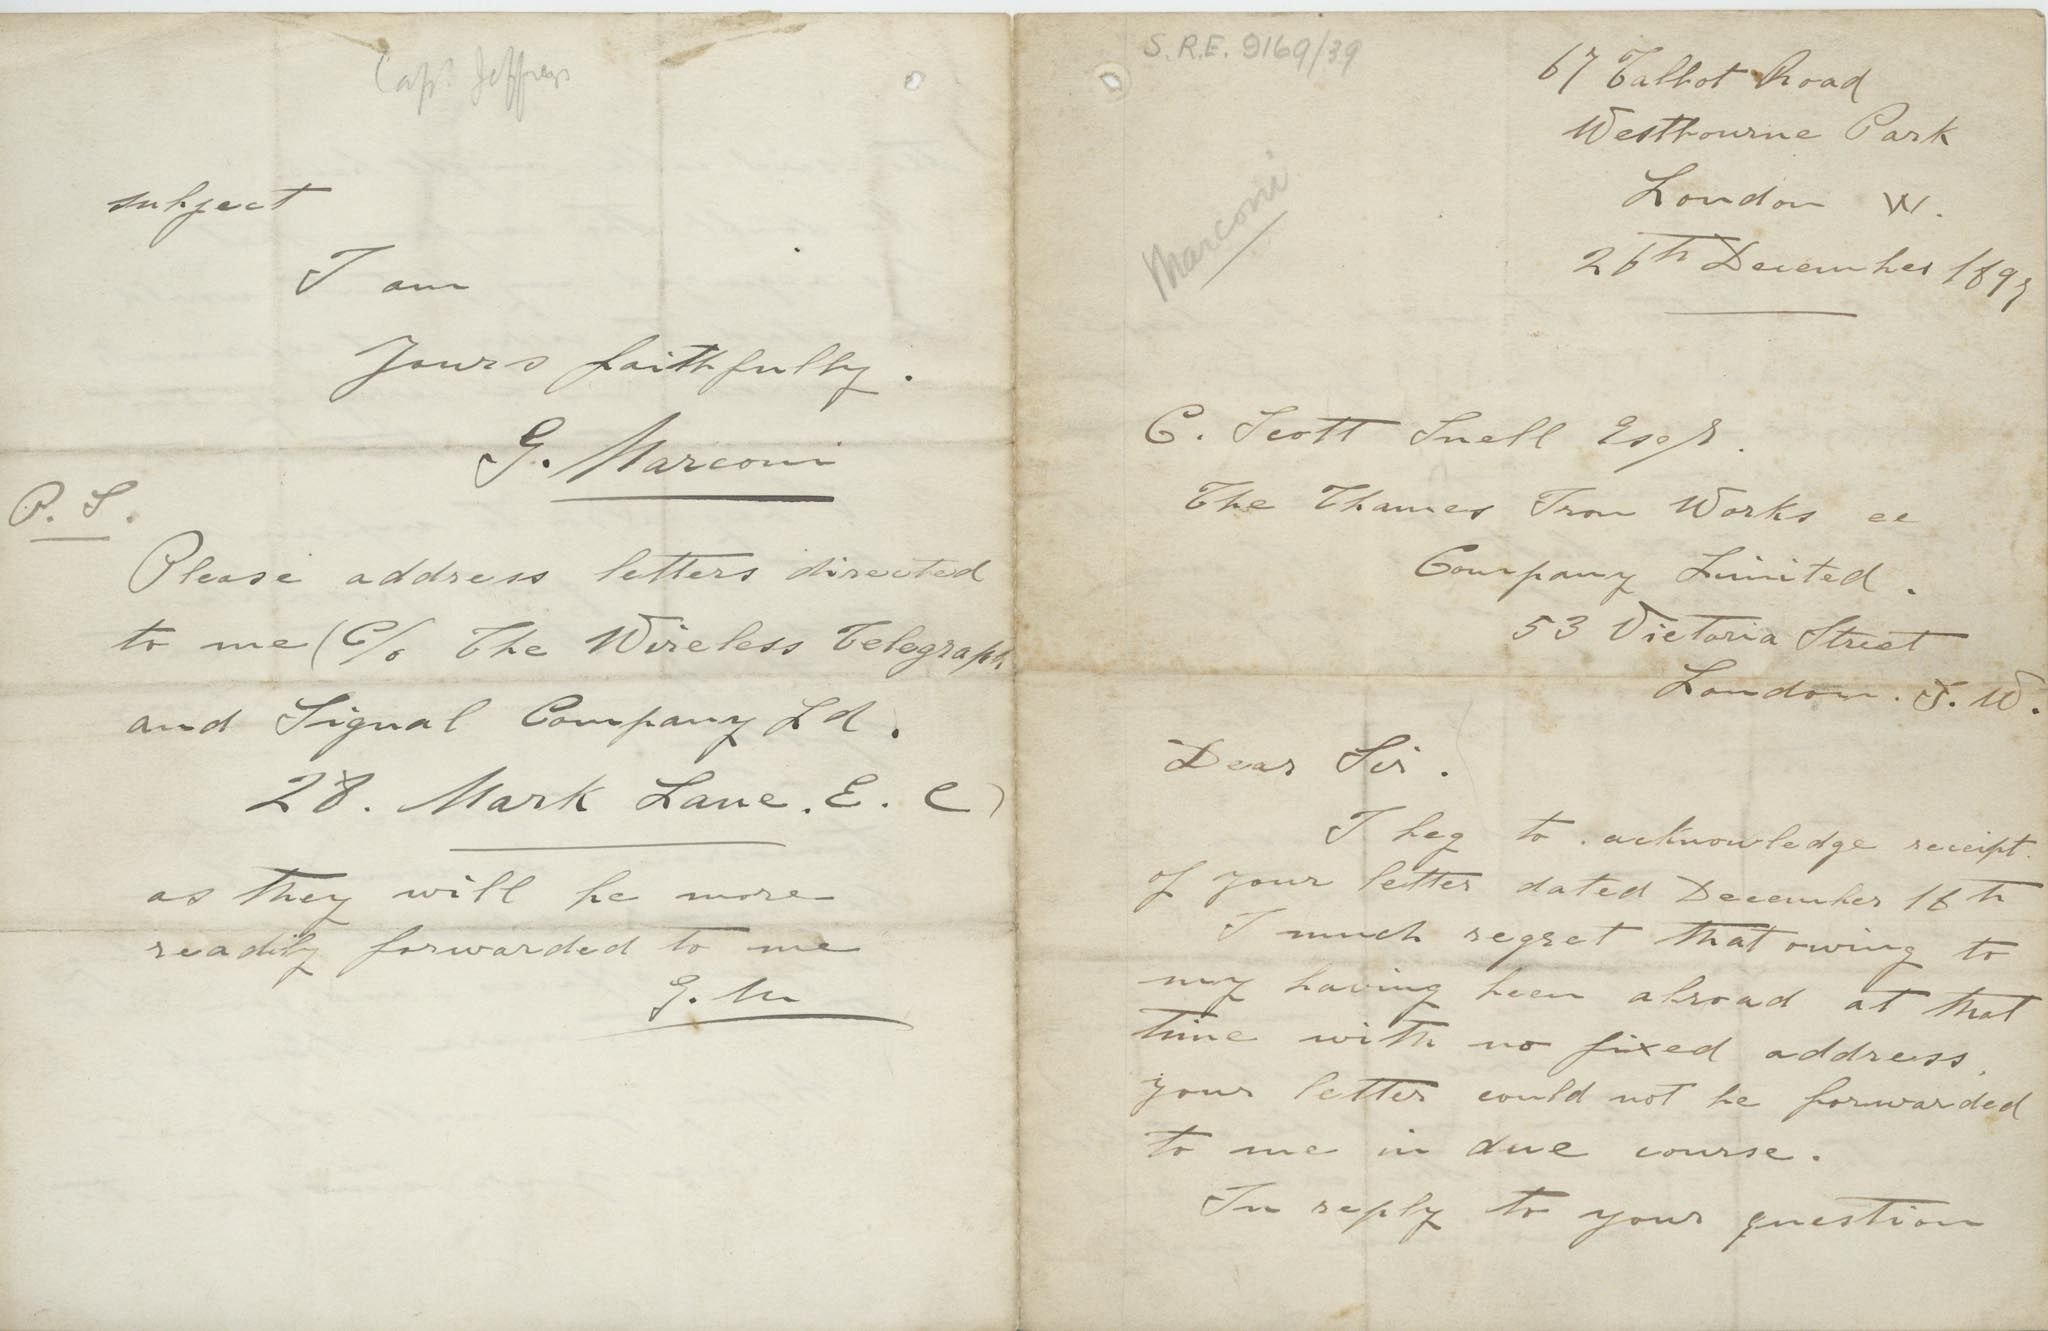 Capt Jeffreys
subject
I am
Yours faithfully.
G. Marconi
P. S.
Please address letters directed
to me (C/o The Wireless Telegraph
and Signal Company Ld.
28. Mark Lane. E. C)
as they will be more
readily forwarded to me
G. M
S.R.E. 9169/39
Marconi
67 Talbot Road
Westbourne Park
London W.
26th December 1897
C. Scott Snell Esqr.
The Thames Iron Works &
Company Limited.
53 Victoria Street
London. S. W.
Dear Sir.
I beg to acknowledge receipt
of your letter dated December 16th
I much regret that owing to
my having been abroad at that
time with no fixed address,
your letter could not be forwarded
to me in due course.
In reply to your question